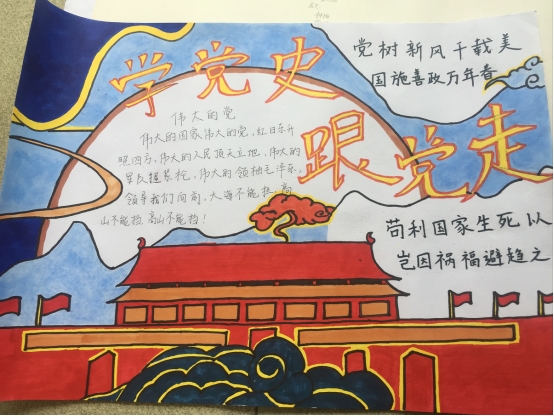 学党史
跟党走
党树新风千载美
国施善政万年春
伟大的党
伟大的国家伟大的党，红日东升
照四方，伟大的人民顶天立地，伟大的
军队挺脊梁，伟大的领袖毛泽东，
领导我们向前，大海不能挡 高
山不能挡 高山不能挡！
苟利国家生死以
岂因祸福避趋之